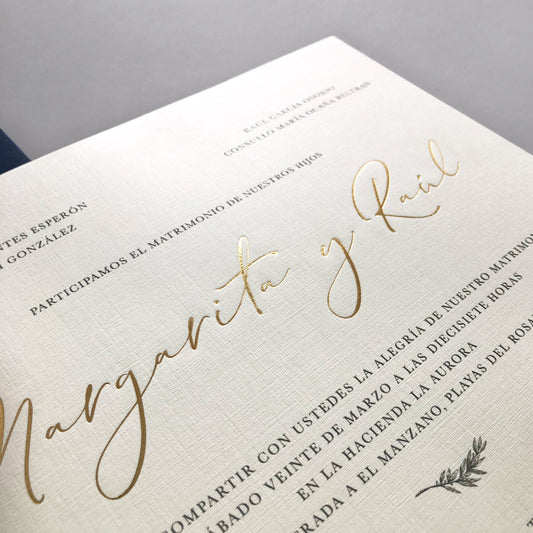 RAÚL GARCÍA OSORIO
CONSUELO MARÍA OCAÑA BELTRÁN
NTES ESPERÓN
GONZÁLEZ
PARTICIPAMOS EL MATRIMONIO DE NUESTROS HIJOS
Margarita y Raúl
OMPARTIR CON USTEDES LA ALEGRÍA DE NUESTRO MATRIMON
ÁBADO VEINTE DE MARZO A LAS DIECISIETE HORAS
EN LA HACIENDA LA AURORA
ERADA A EL MANZANO, PLAYAS DEL ROSA